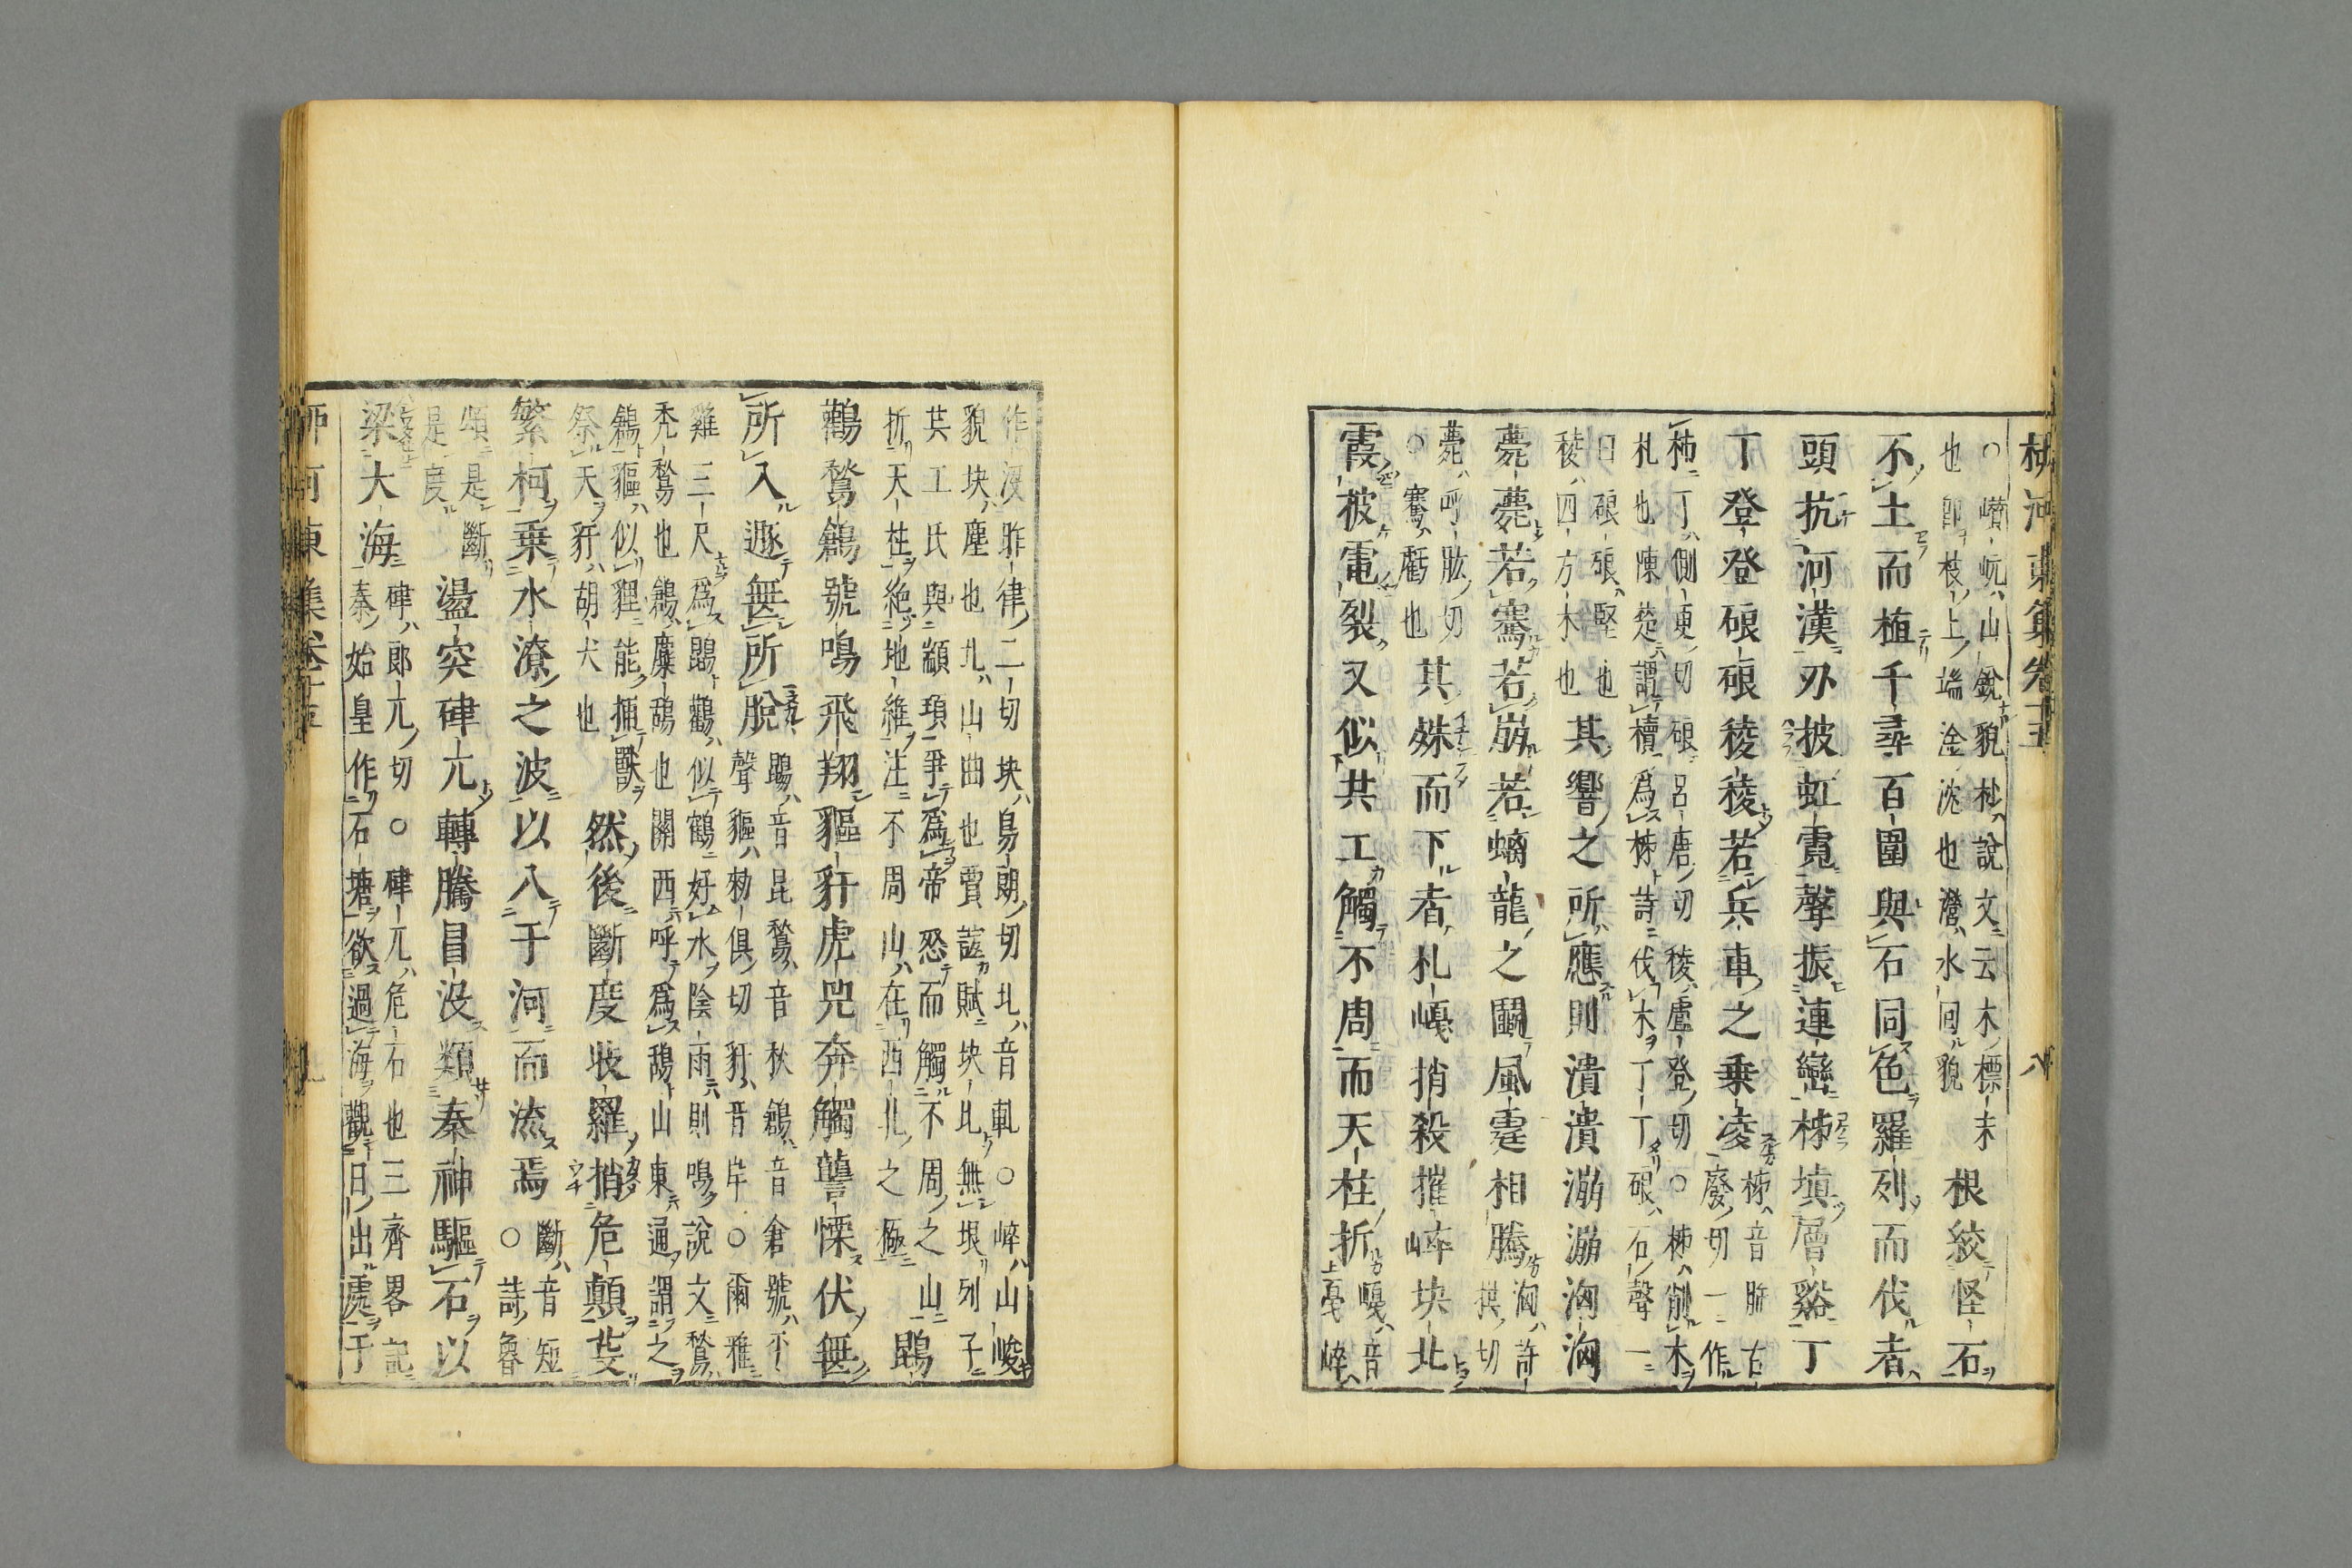 河東集卷十五 八
○巑岏山銳貌杪說文云木標末
也卽枝上端淦沈也瀯水回貌
根絞怪石
不土而植千尋百圍與石同色羅列而伐者
頭抗河漢刃披虹霓聲振連巒柿塡層谿丁
丁登登硠硠稜稜若兵車之乘凌
柿音肺古
廢切一作
柹丁側更切硠呂唐切稜盧登切○柿削木
札也陳楚謂櫝爲柿詩伐木丁丁硠石聲一
曰硠硠堅也
稜四方木也
其響之所應則潰潰漰漰洶洶
薨薨若騫若崩若螭龍之鬬風霆相騰
洶許
拱切
薨呼肱切
○騫虧也
其殊而下者札嶱捎殺摧崒坱圠
霞披電裂又似共工觸不周而天柱折
嘎音
戛崪
作沒昨律二切坱烏朗切圠音軋○崪山峻
貌坱塵也圠山曲也賈誼賦坱圠無垠列子
共工氏與顓頊爭爲帝恐而觸不周之山
折天柱絶地維注不周山在西北之極
鵾
鸛鶖鶬號鳴飛翔貙豻虎兕奔觸讋慄伏無
所入遯無所脫
鵾音昆鶖音秋鶬音倉號平
聲貙勑俱切豻音岸○爾雅
雞三尺爲鵾鸛似鶴好水陰雨則鳴說文鶖
禿鶖也鶬麋鴰也關西呼爲鴰山東通謂之
鶬貙似貍能捕獸
祭天豻胡犬也
然後斷度收羅捎危顛芟
繁柯乘水潦之波以入于河而流焉
斷音短
○詩魯
頌是斷
是度
盪突硉兀轉騰冒没類秦神驅石以
梁大海
硉郎兀切○硉兀危石也三齊畧記
秦始皇作石塘欲過海觀日出處于
河東集卷十五 九